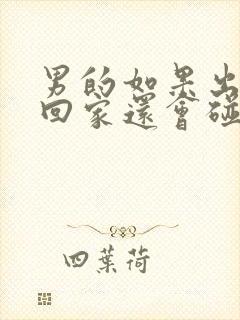 男的如果出
回家還會碰
四葉荷